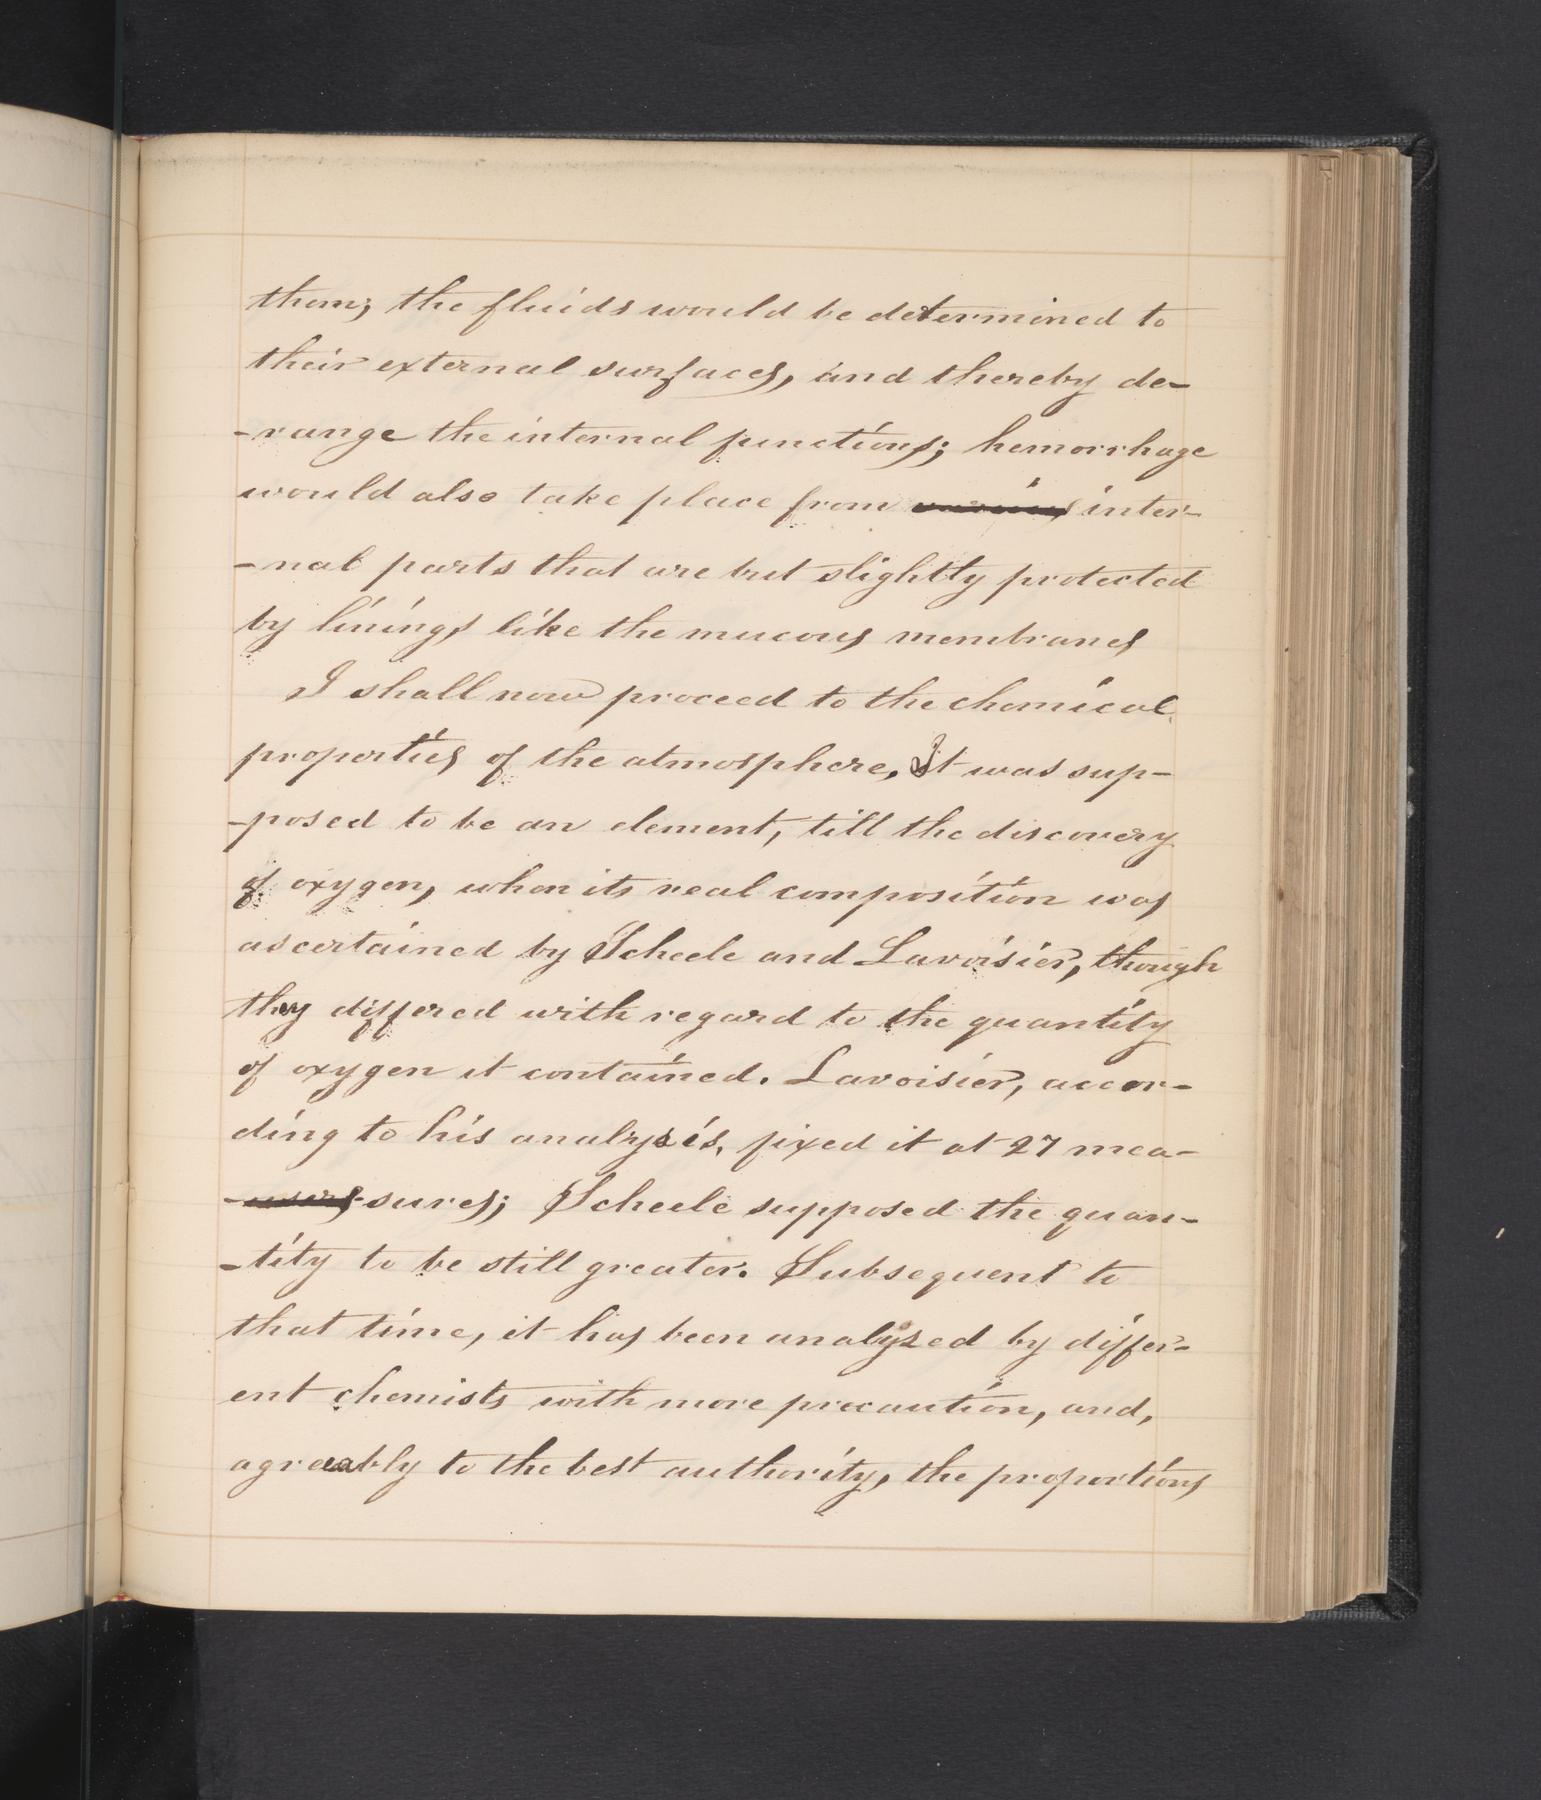 them; the fluids would be determined to
their external surfaces, and thereby de-
-range the internal functions; hemorrhage
would also take place from various inter-
-nal parts that are but slightly protected
by linings like the mucous membranes
I shall now proceed to the chemical
properties of the atmosphere. It was sup-
-posed to be an element, till the discovery
of oxygen, when its real composition was
ascertained by Scheele and Lavoisier, though
they differed with regard to the quantity
of oxygen it contained. Lavoisier, accor-
ding to his analysis, fixed it at 27 mea-
-sures; Scheele supposed the quan-
-tity to be still greater. Subsequent to
that time, it has been analyzed by differ-
ent chemists with more precaution, and,
agreeably to the best authority, the proportions